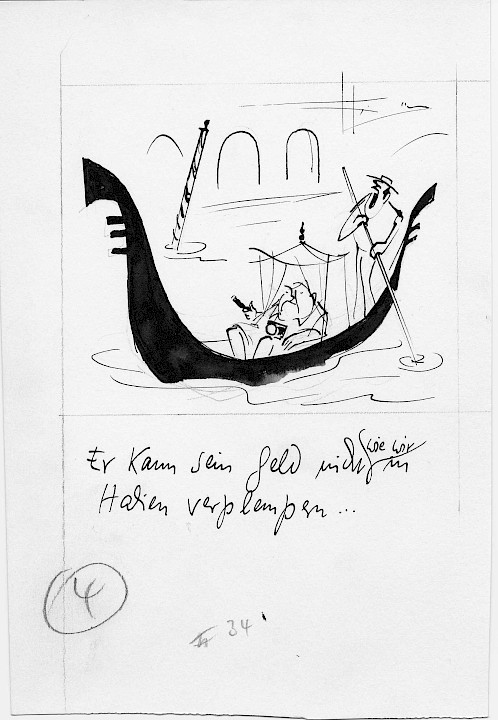 Er kann sein Geld nicht wie wir in
Italien verplempern ...
4
34